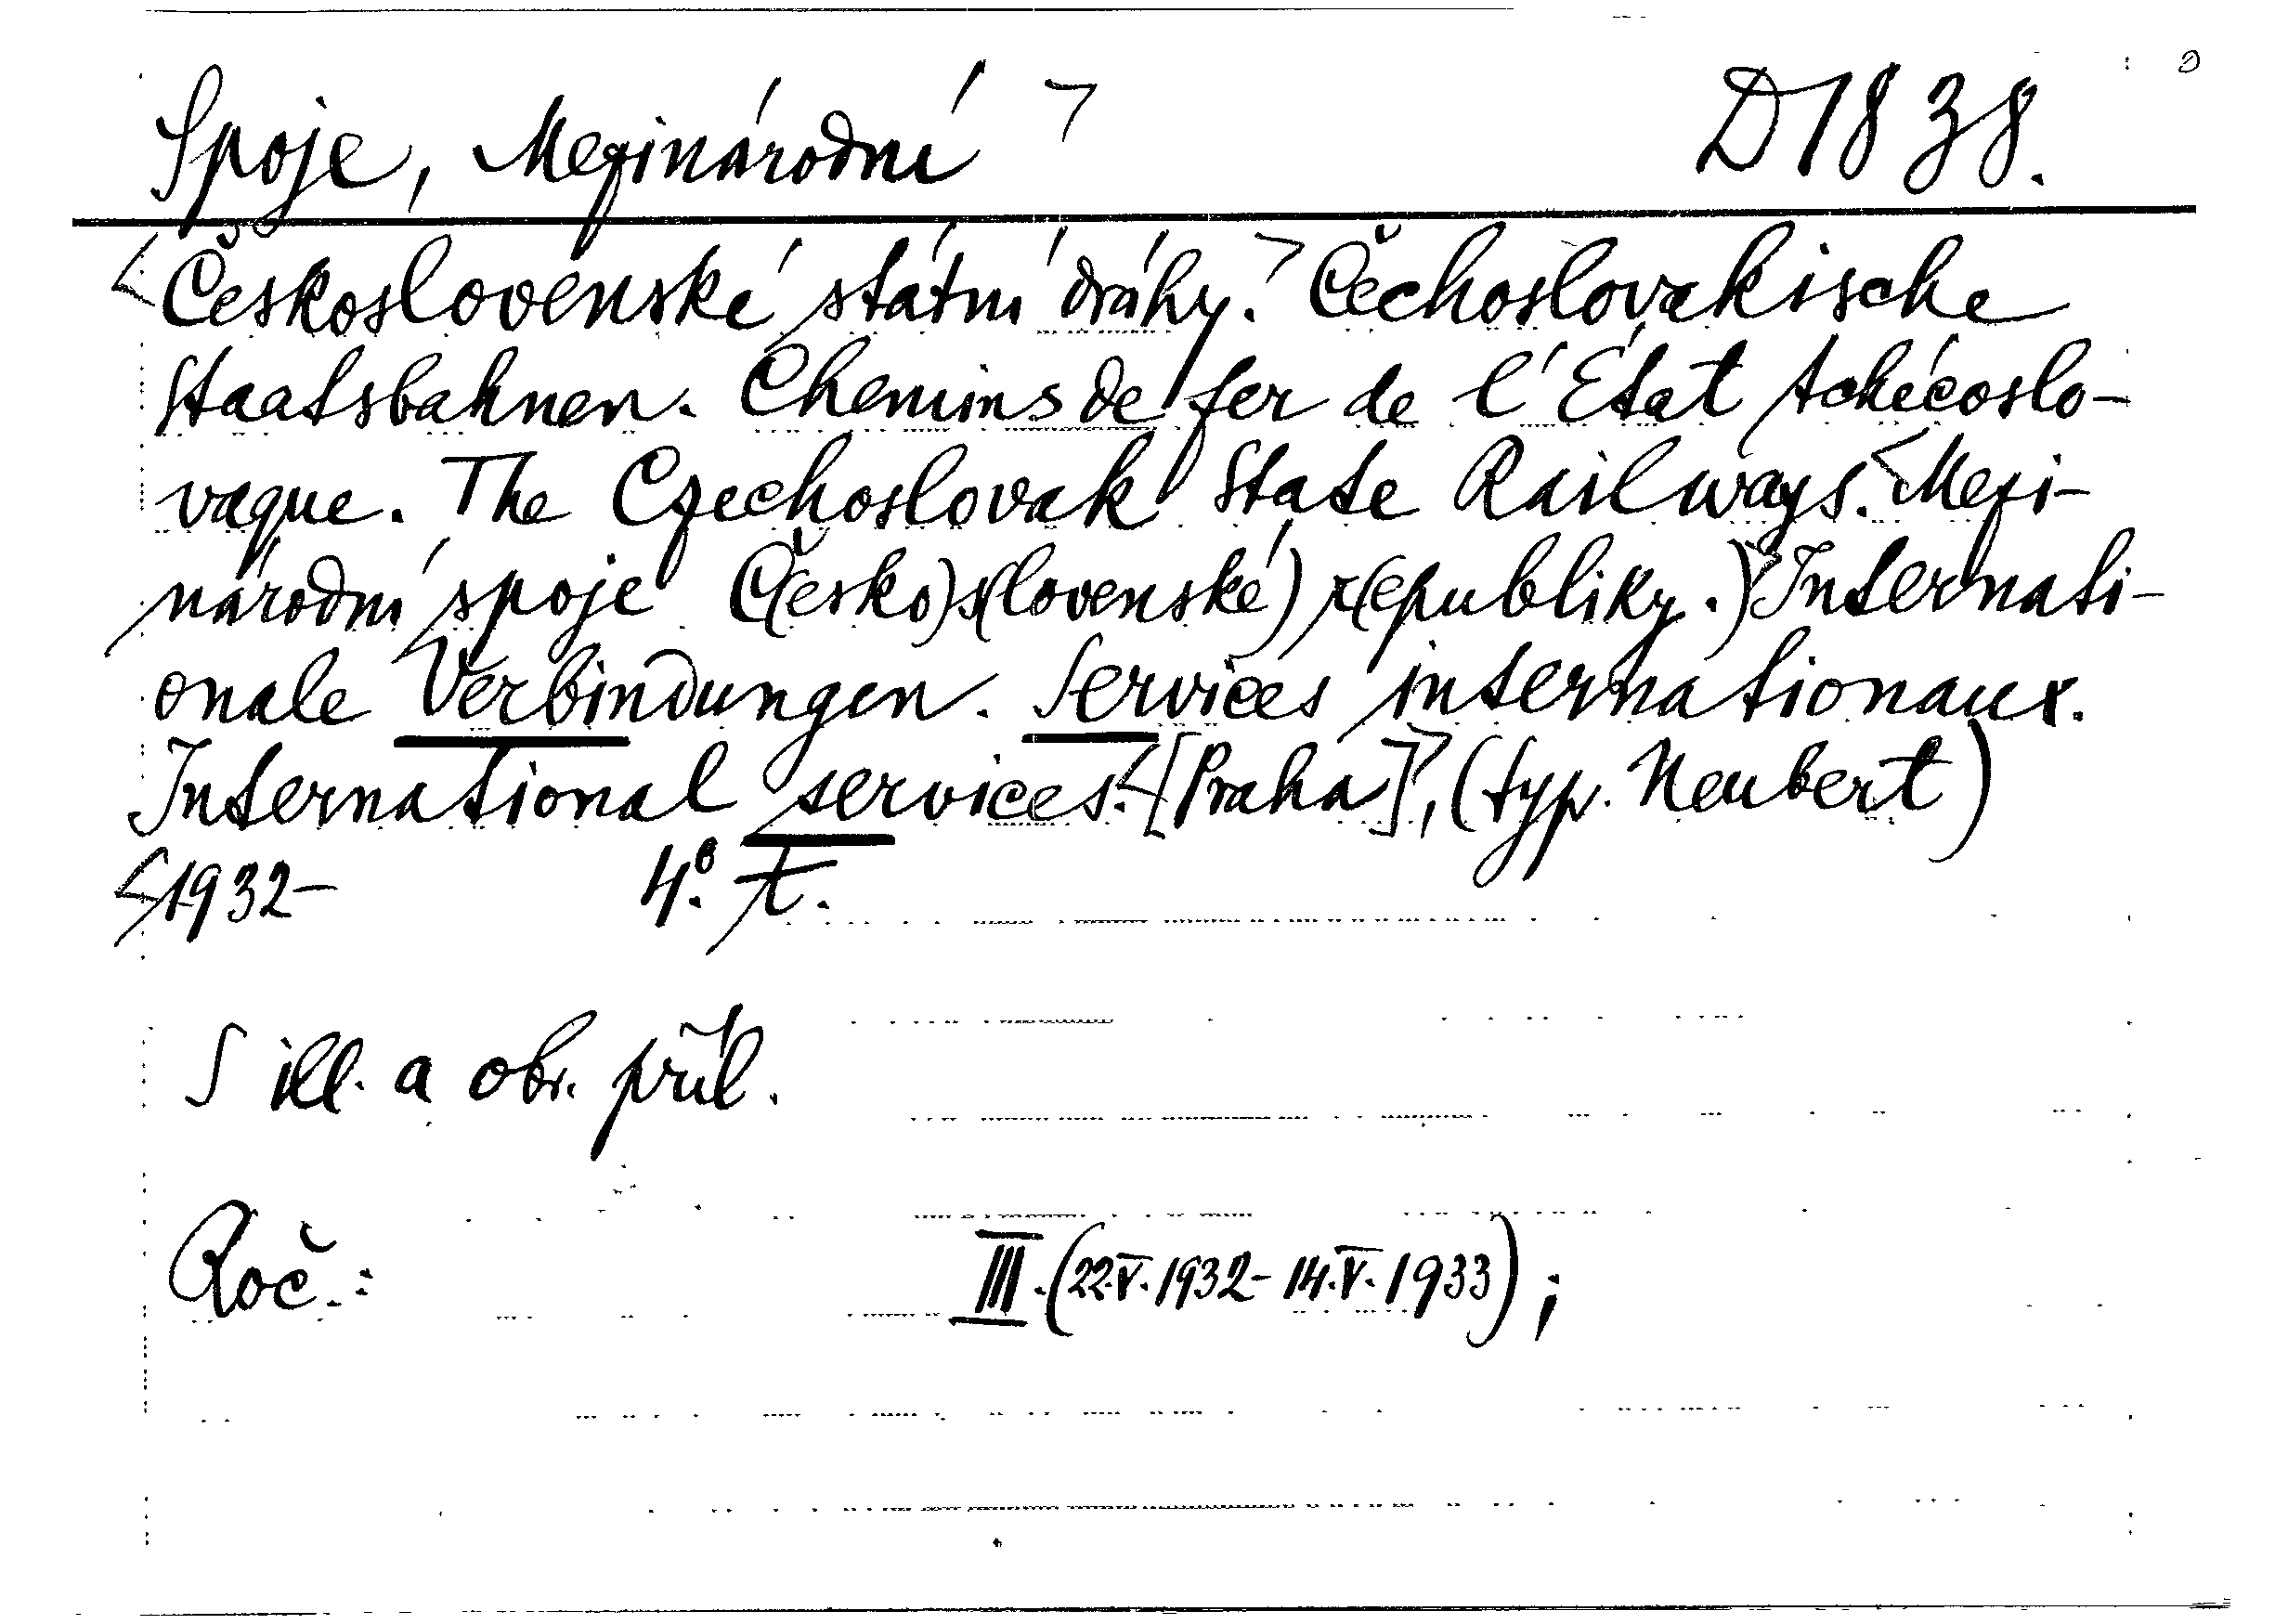 Spoje, Mezinárodní > D 1838.
<Československé státní dráhy.> Čechoslovakische
Staatsbahnen. Chemins de fer de l'État tchécoslo-
vaque. The Czechoslovak State Railways. <Mezi-
národní spoje Č(esko)s(lovenské) r(epubliky.)> Internati-
onale Verbindungen. Services internationaux.
International services. <[Praha]>, (typ. Neubert)
<1932- 4°.
S ill. a obr. příl.
Roč.: III. (22.V.1932-14.V.1933);